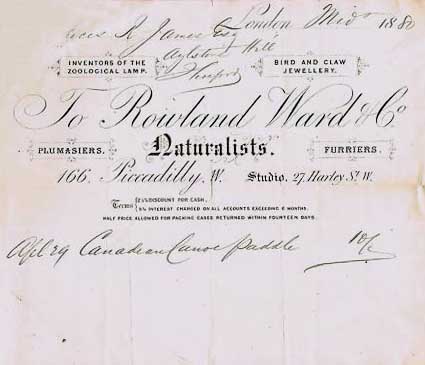 London Midr 1880
R. James Esq
Aylstone Hill
Hereford
INVENTORS OF THE ZOOLOGICAL LAMP.
BIRD AND CLAW JEWELLERY.
To Rowland Ward & Co
PLUMASIERS.
Naturalists.
FURRIERS.
166, Piccadilly, W. Studio, 27, Harley St. W.
Terms 2½% DISCOUNT FOR CASH.
5% INTEREST CHARGED ON ALL ACCOUNTS EXCEEDING 6 MONTHS.
HALF PRICE ALLOWED FOR PACKING CASES RETURNED WITHIN FOURTEEN DAYS.
Apl 29 Canadian Canoe paddle 10/-